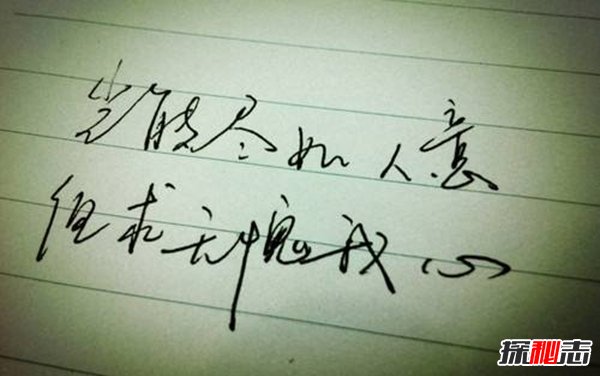 岂能尽如人意
但求无愧我心
探秘志